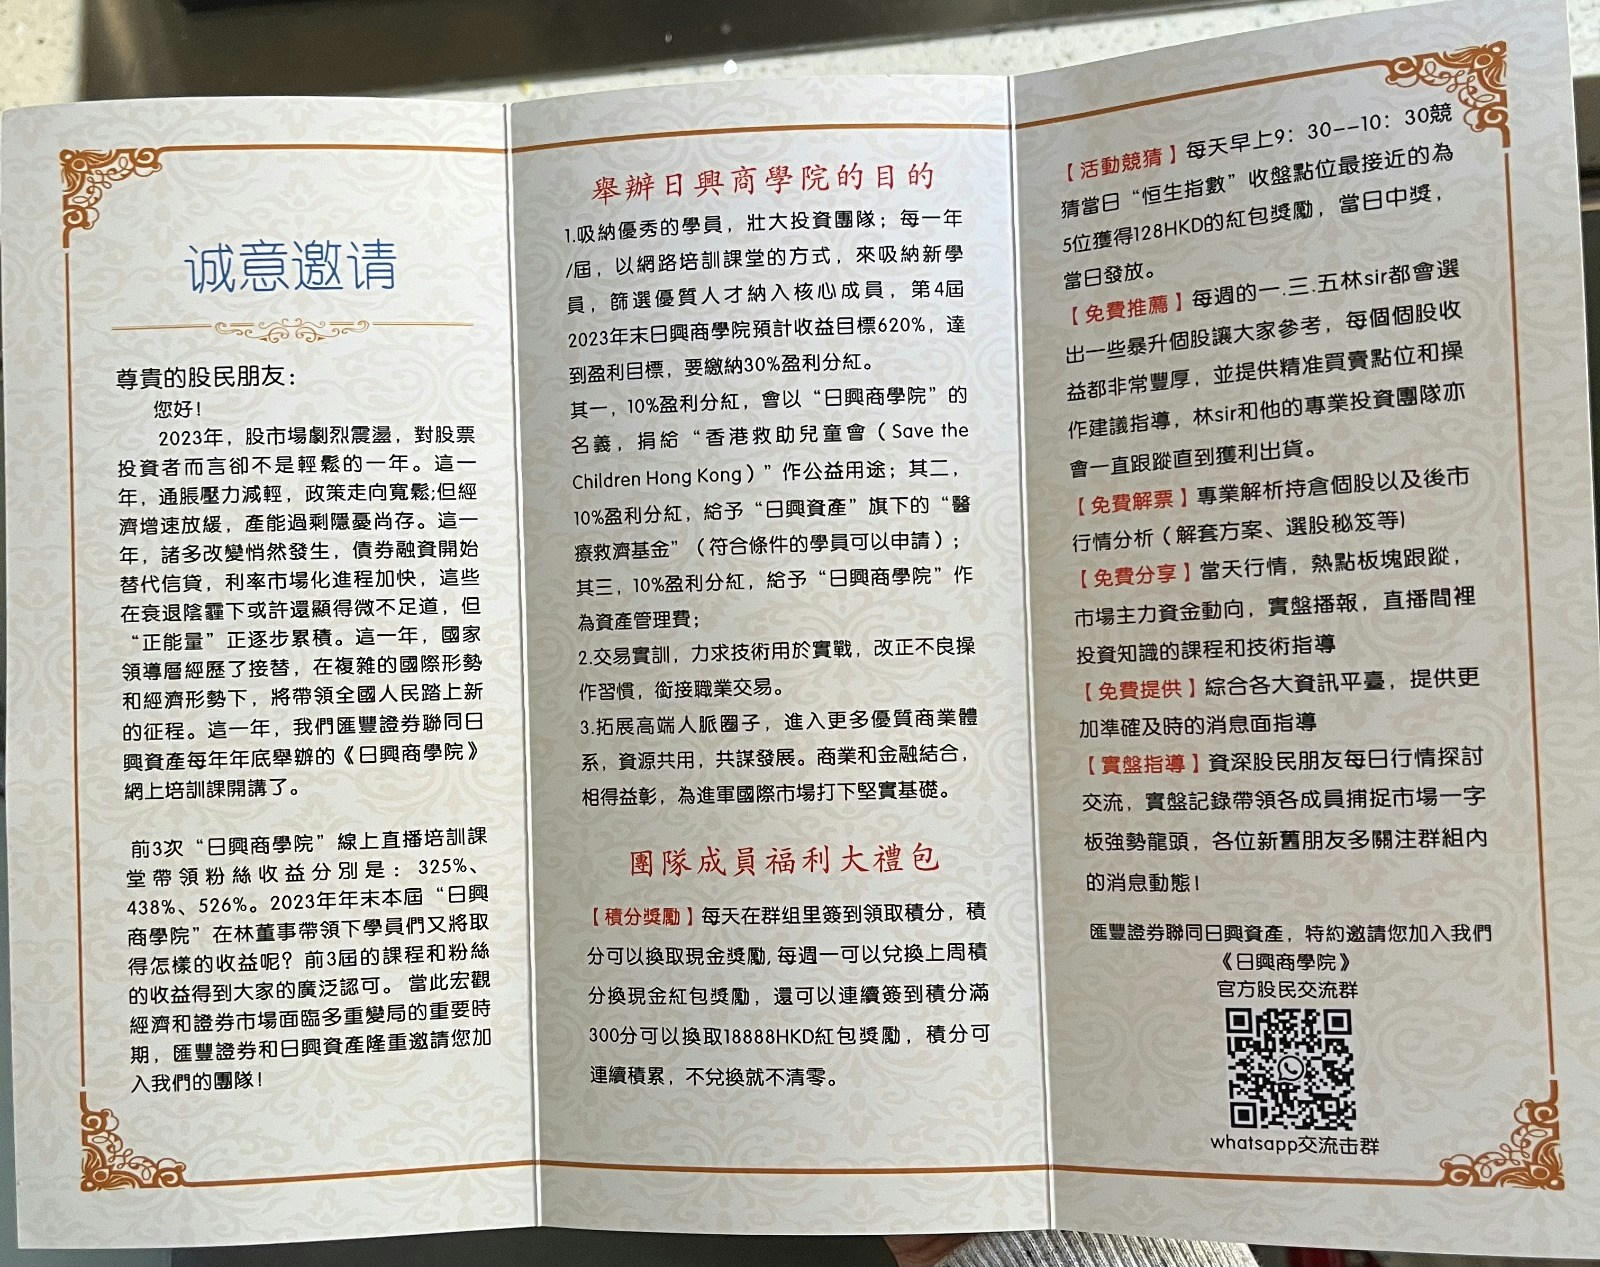 诚意邀请
尊貴的股民朋友：
您好！
2023年，股市場劇烈震盪，對股票
投資者而言卻不是輕鬆的一年。這一
年，通脹壓力減輕，政策走向寬鬆;但經
濟增速放緩，產能過剩隱憂尚存。這一
年，諸多改變悄然發生，債券融資開始
替代信貸，利率市場化進程加快，這些
在衰退陰霾下或許還顯得微不足道，但
“正能量”正逐步累積。這一年，國家
領導層經歷了接替，在複雜的國際形勢
和經濟形勢下，將帶領全國人民踏上新
的征程。這一年，我們匯豐證券聯同日
興資產每年年底舉辦的《日興商學院》
網上培訓課開講了。
前3次“日興商學院”線上直播培訓課
堂帶領粉絲收益分別是：325%、
438%、526%。2023年年末本屆“日興
商學院”在林董事帶領下學員們又將取
得怎樣的收益呢？前3屆的課程和粉絲
的收益得到大家的廣泛認可。當此宏觀
經濟和證券市場面臨多重變局的重要時
期，匯豐證券和日興資產隆重邀請您加
入我們的團隊！
舉辦日興商學院的目的
1.吸納優秀的學員，壯大投資團隊；每一年
/屆，以網路培訓課堂的方式，來吸納新學
員，篩選優質人才納入核心成員，第4屆
2023年末日興商學院預計收益目標620%，達
到盈利目標，要繳納30%盈利分紅。
其一，10%盈利分紅，會以“日興商學院”的
名義，捐給“香港救助兒童會（Save the
Children Hong Kong）”作公益用途；其二，
10%盈利分紅，給予“日興資產”旗下的“醫
療救濟基金”（符合條件的學員可以申請）；
其三，10%盈利分紅，給予“日興商學院”作
為資產管理費；
2.交易實訓，力求技術用於實戰，改正不良操
作習慣，銜接職業交易。
3.拓展高端人脈圈子，進入更多優質商業體
系，資源共用，共謀發展。商業和金融結合，
相得益彰，為進軍國際市場打下堅實基礎。
團隊成員福利大禮包
【積分獎勵】每天在群组里簽到領取積分，積
分可以換取現金獎勵,每週一可以兌換上周積
分換現金紅包獎勵，還可以連續簽到積分滿
300分可以換取18888HKD紅包獎勵，積分可
連續積累，不兌換就不清零。
【活動競猜】每天早上9：30--10：30競
猜當日“恒生指數”收盤點位最接近的為
5位獲得128HKD的紅包獎勵，當日中獎，
當日發放。
【免費推薦】每週的一.三.五林sir都會選
出一些暴升個股讓大家參考，每個個股收
益都非常豐厚，並提供精准買賣點位和操
作建議指導，林sir和他的專業投資團隊亦
會一直跟蹤直到獲利出貨。
【免費解票】專業解析持倉個股以及後市
行情分析（解套方案、選股秘笈等)
【免費分享】當天行情，熱點板塊跟蹤，
市場主力資金動向，實盤播報，直播間裡
投資知識的課程和技術指導
【免費提供】綜合各大資訊平臺，提供更
加準確及時的消息面指導
【實盤指導】資深股民朋友每日行情探討
交流，實盤記錄帶領各成員捕捉市場一字
板強勢龍頭，各位新舊朋友多關注群組內
的消息動態！
匯豐證券聯同日興資產，特約邀請您加入我們
《日興商學院》
官方股民交流群
whatsapp交流击群